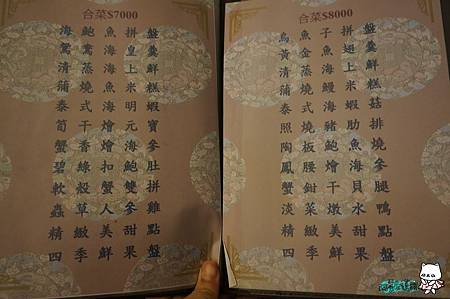 合菜$7000
海鮑魚拼盤
鴛鴦海皇羹
清蒸海上鮮
蒲燒魚米糕
泰式海明蝦
筍干燴元寶
蟹香燴海參
碧綠扣鮑肚
軟殼蟹雙拼
蟲草人參雞
精緻美甜點
四季鮮果盤
合菜$8000
烏魚子拼盤
黃金魚翅羹
清蒸海上鮮
蒲燒鰻米糕
泰式海蝦菇
照燒豬肋排
陶板鮑魚燒
鳳腰燴海參
蟹鉗干貝腿
淡菜燉水鴨
精緻美甜點
四季鮮果盤